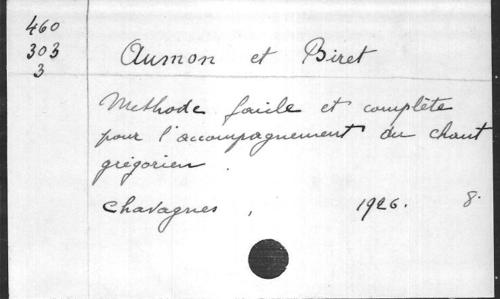 460
303
3
Aumon et Biret
Methode facile et complète
pour l'accompagnement du chant
grégorien.
Chavagnes, 1926. 8.